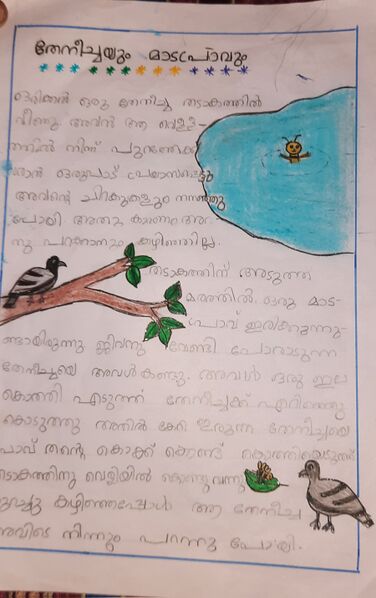 തേനീച്ചയും മാടപ്രാവും
ഒരിക്കൽ ഒരു തേനീച്ച തടാകത്തിൽ
വീണു. അവൻ ആ വെള്ള-
ത്തിൽ നിന്ന് പുറത്തേക്ക്
വരാൻ ഒരുപാട് പ്രയാസപ്പെട്ടു
അവന്റെ ചിറകുകളും നനഞ്ഞു
പോയി അതു കാരണം അവ
നു പറക്കാനും കഴിഞ്ഞില്ല.
തടാകത്തിന് അടുത്ത
മരത്തിൽ ഒരു മാട-
പ്രാവ് ഇരിക്കുന്നു-
ണ്ടായിരുന്നു ജീവനു വേണ്ടി പോരാടുന്ന
തേനീച്ചയെ അവൾ കണ്ടു. അവൾ ഒരു ഇല
കൊത്തി എടുത്ത് തേനീച്ചക്ക് എറിഞ്ഞു
കൊടുത്തു അതിൽ കേറി ഇരുന്ന തേനീച്ചയെ
പ്രാവ് തന്റെ കൊക്ക് കൊണ്ട് കൊത്തിയെടുത്ത്
തടാകത്തിനു വെളിയിൽ കൊണ്ടുവന്നു
കുറച്ചു കഴിഞ്ഞപ്പോൾ ആ തേനീച്ച
അവിടെ നിന്നും പറന്നു പോയി.